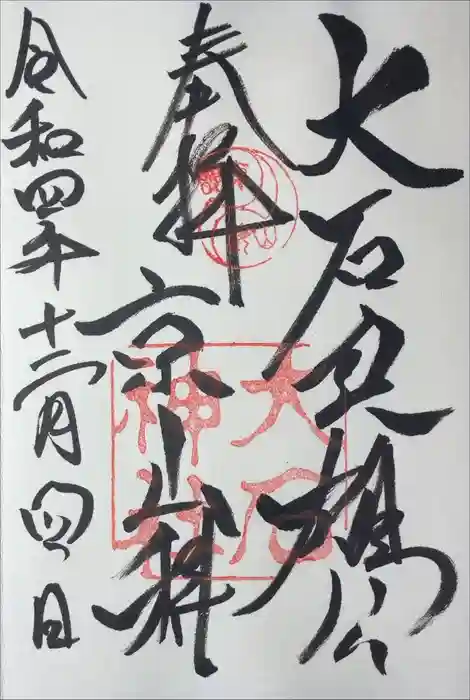 大石良雄公
奉拝
京山科
令和四年十二月四日
大石神社